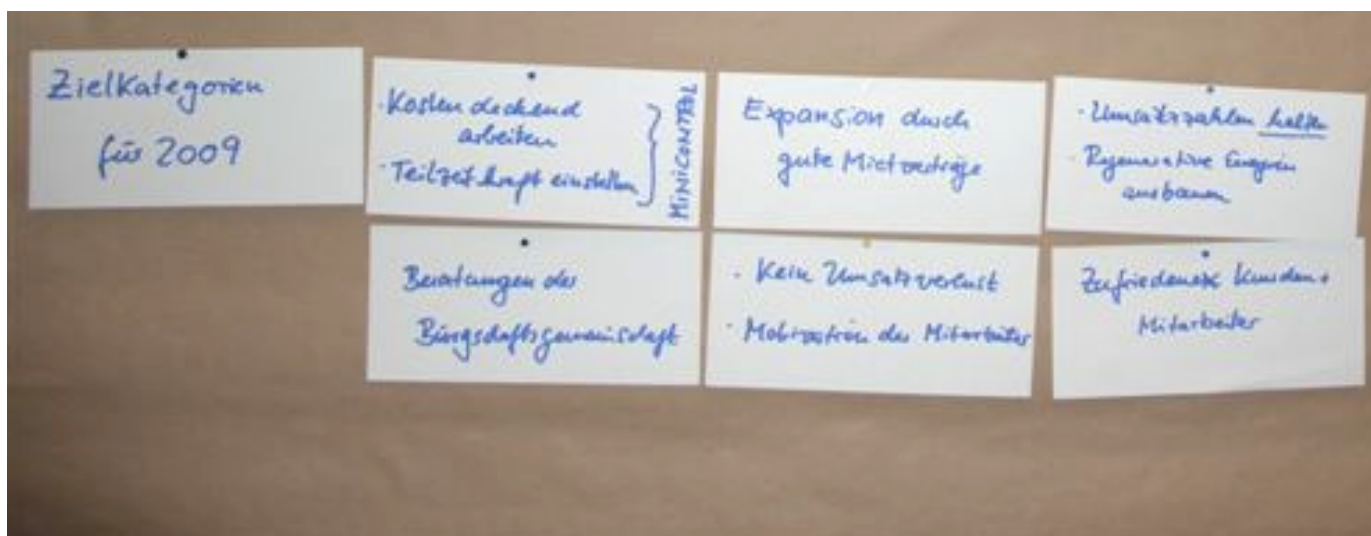 Zielkategorien
für 2009
· Kosten deckend
arbeiten
· Teilzeitkraft einstellen
MINICONTROL
Expansion durch
gute Mietverträge
· Umsatzzahlen halten
· Regenerative Energien
ausbauen
Beratungen der
Bürgschaftsgemeinschaft
· Kein Umsatzverlust
· Motivation der Mitarbeiter
Zufriedene Kunden +
Mitarbeiter